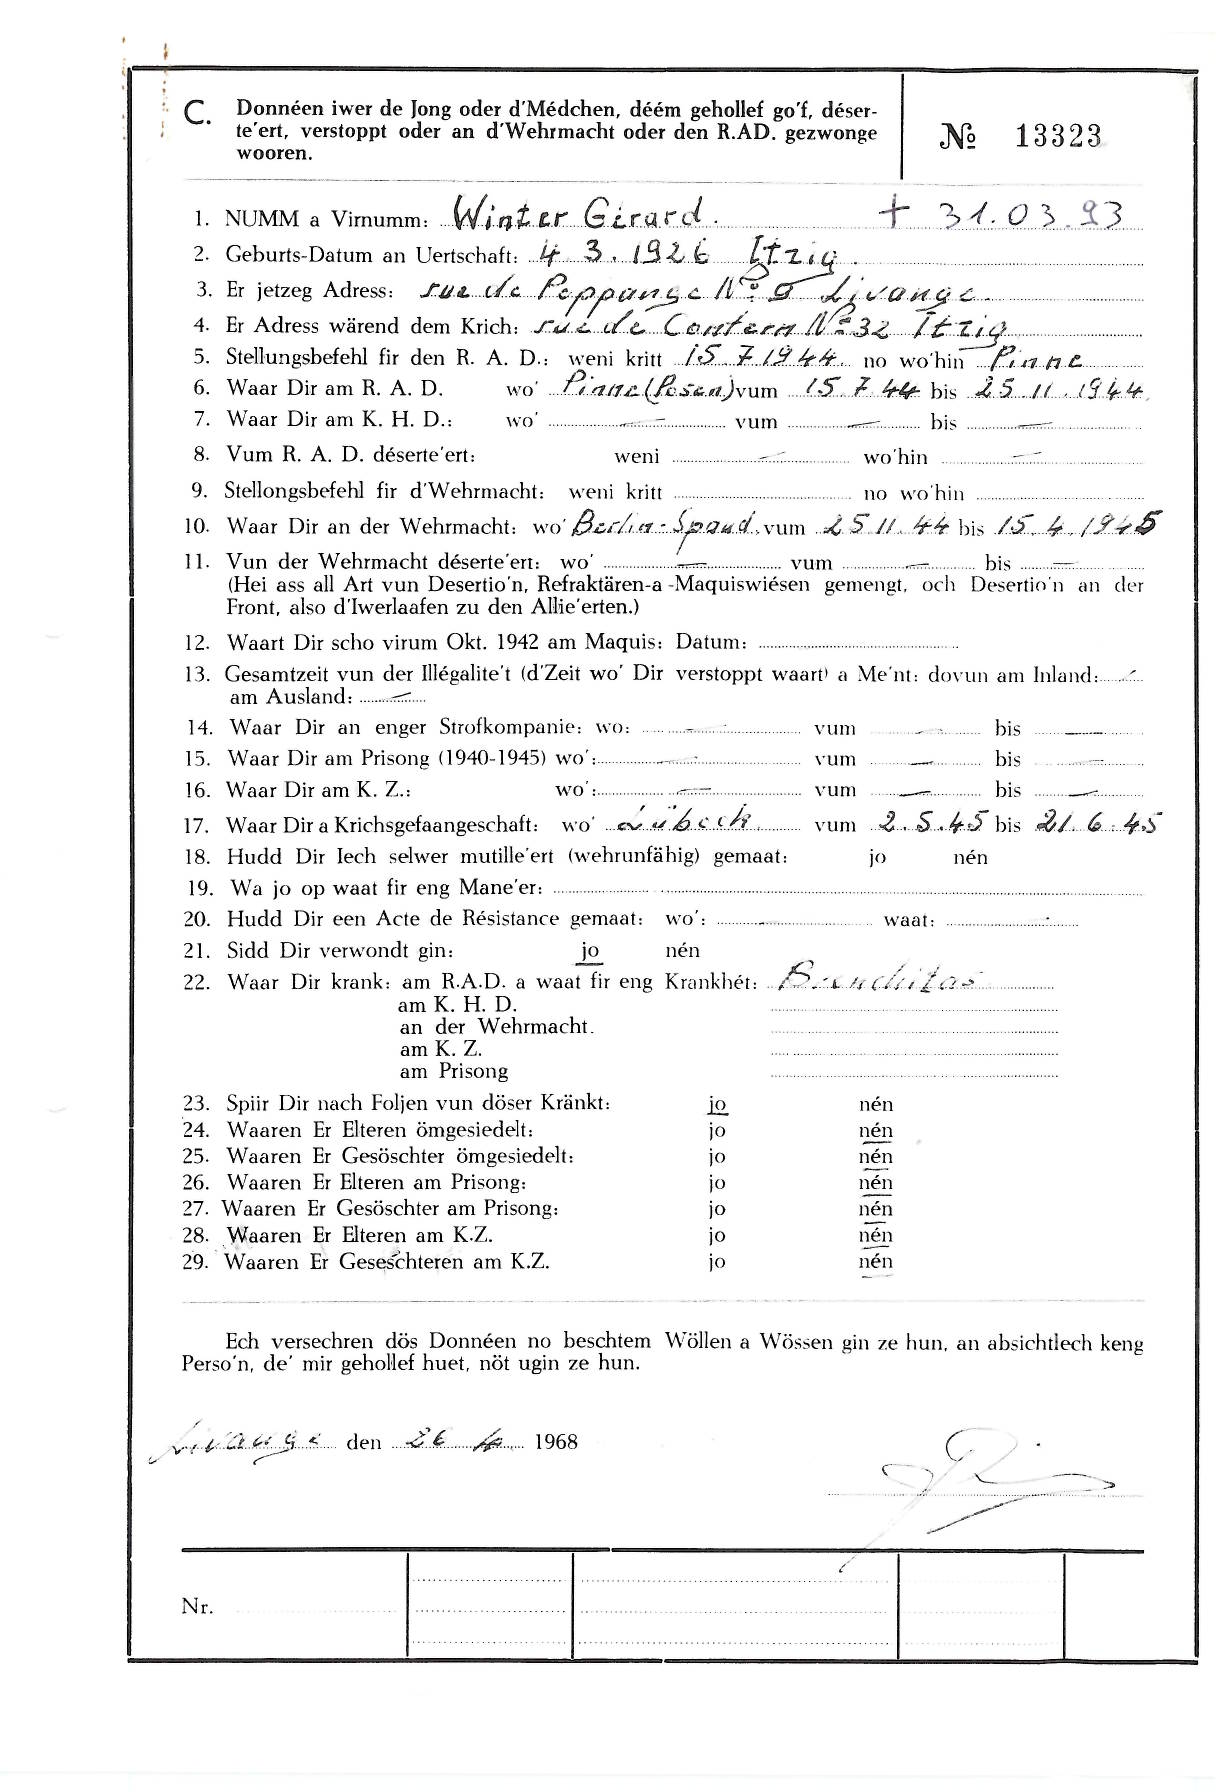 C. Donnéen iwer de Jong oder d'Médchen, déém gehollef go'f, déser-
te'ert, verstoppt oder an d'Wehrmacht oder den R.AD. gezwonge
wooren.
№ 13323
1. NUMM a Virnumm: Winter Gérard. + 31.03.93
2. Geburts-Datum an Uertschaft: 4 3. 1926 Itzig.
3. Er jetzeg Adress: rue de Peppange N° 9 Livange.
4. Er Adress wärend dem Krich: rue de Contern N° 32 Itzig
5. Stellungsbefehl fir den R. A. D.: weni kritt 15.7.1944. no wo'hin Pinne
6. Waar Dir am R. A. D. wo' Pinne (Posen) vum 15.7.44 bis 25.11.1944.
7. Waar Dir am K. H. D.: wo' — vum — bis —
8. Vum R. A. D. déserte'ert: weni — wo'hin —
9. Stellongsbefehl fir d'Wehrmacht: weni kritt no wo'hin
10. Waar Dir an der Wehrmacht: wo' Berlin-Spand. vum 25.11.44 bis 15.4.1945
11. Vun der Wehrmacht déserte'ert: wo' — vum — bis —
(Hei ass all Art vun Desertio'n, Refraktären-a -Maquiswiésen gemengt, och Desertio'n an der
Front, also d'Iwerlaafen zu den Allie'erten.)
12. Waart Dir scho virum Okt. 1942 am Maquis: Datum:
13. Gesamtzeit vun der Illégalite't (d'Zeit wo' Dir verstoppt waart) a Me'nt: dovun am Inland: —
am Ausland: —
14. Waar Dir an enger Strofkompanie: wo: — vum — bis —
15. Waar Dir am Prisong (1940-1945) wo': — vum — bis —
16. Waar Dir am K. Z.: wo': — vum — bis —
17. Waar Dir a Krichsgefaangeschaft: wo' Lübeck. vum 2.5.45 bis 21.6.45
18. Hudd Dir Iech selwer mutille'ert (wehrunfähig) gemaat: jo nén
19. Wa jo op waat fir eng Mane'er:
20. Hudd Dir een Acte de Résistance gemaat: wo': — waat:
21. Sidd Dir verwondt gin: jo nén
22. Waar Dir krank: am R.A.D. a waat fir eng Krankhét: Bronchitas
am K. H. D.
an der Wehrmacht.
am K. Z.
am Prisong
23. Spiir Dir nach Foljen vun döser Kränkt: jo nén
24. Waaren Er Elteren ömgesiedelt: jo nén
25. Waaren Er Gesöschter ömgesiedelt: jo nén
26. Waaren Er Elteren am Prisong: jo nén
27. Waaren Er Gesöschter am Prisong: jo nén
28. Waaren Er Elteren am K.Z. jo nén
29. Waaren Er Geseschteren am K.Z. jo nén
Ech versechren dös Donnéen no beschtem Wöllen a Wössen gin ze hun, an absichtlech keng
Perso'n, de' mir gehollef huet, nöt ugin ze hun.
Livange den 26 4. 1968
Nr.